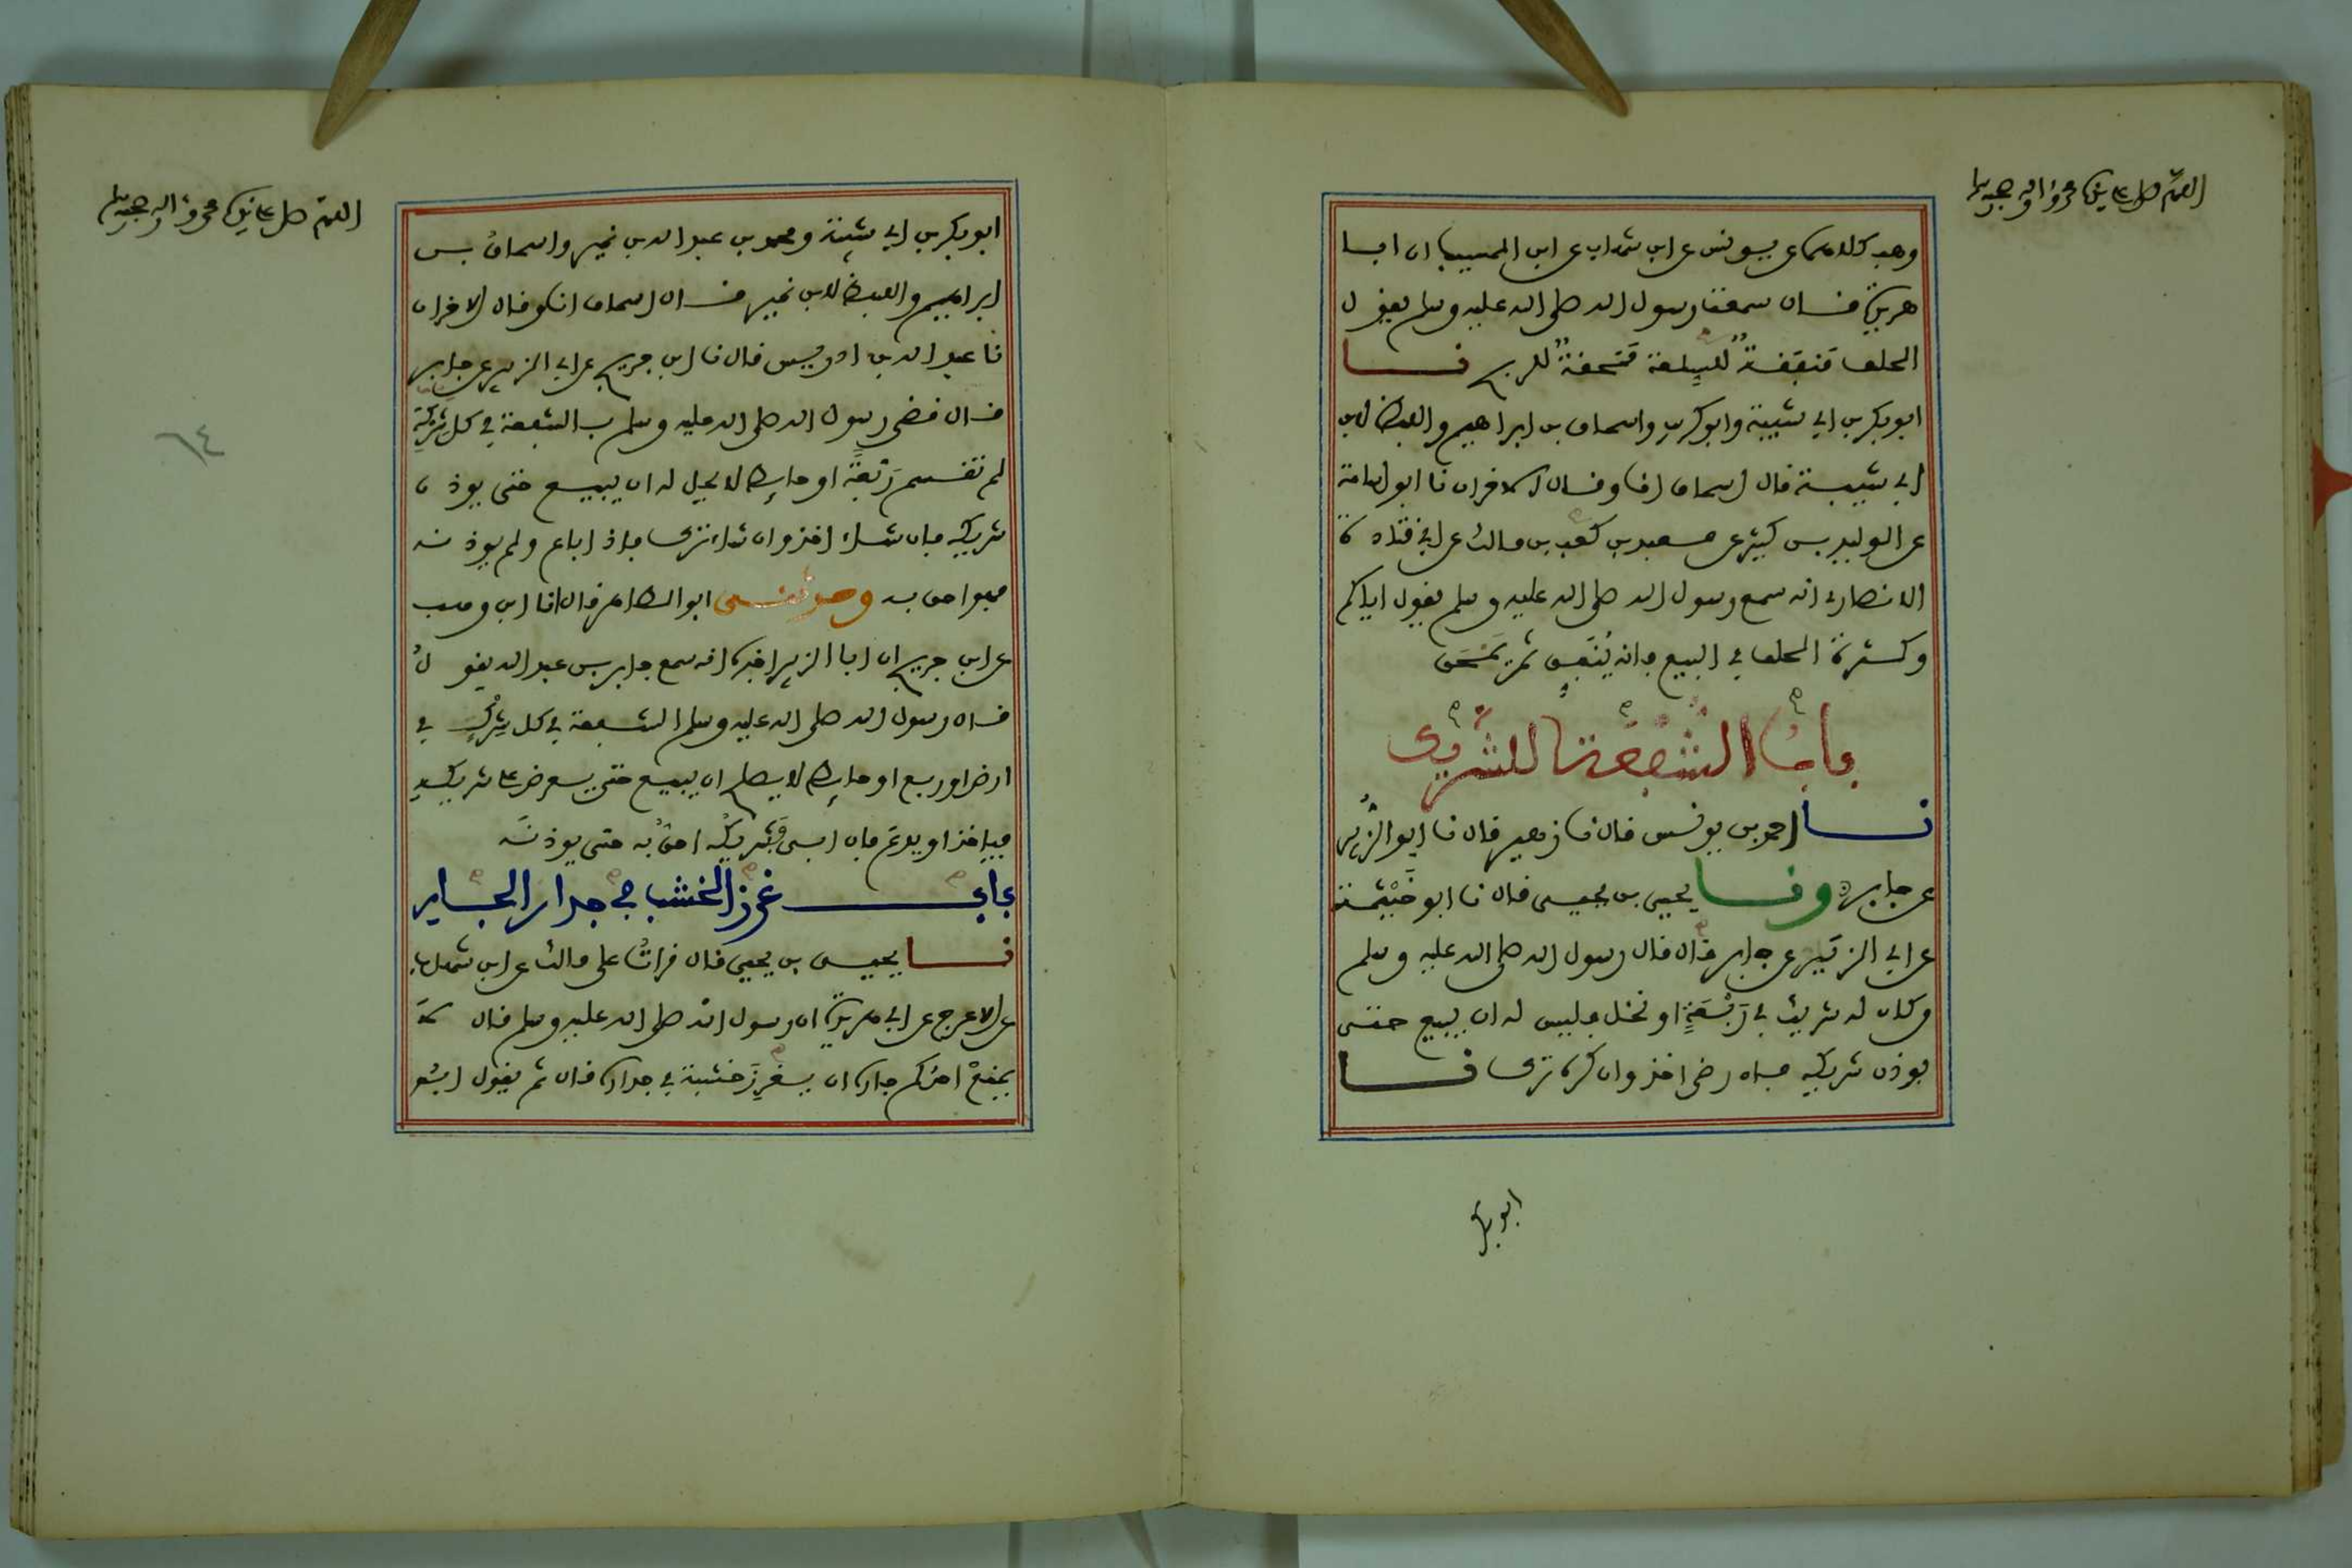 اللهم صل على نبينا محمد واله وصحبه وسلم
وهب كلاهما عن يونس عن ابن شهاب عن ابن المسيب ان ابا
هريرة قال سمعت رسول الله صلى الله عليه وسلم يقول
الحلف مَنفَقةٌ للسِّلعة مَمْحقةٌ للربح نا
ابو بكر بن ابي شيبة وابو كريب واسحاق بن ابراهيم واللفظ لابن
ابي شيبة قال اسحاق انا وقال الاخران نا ابو اسامة
عن الوليد بن كثير عن معبد بن كعب بن مالك عن ابي قتادة
الانصاري انه سمع رسول الله صلى الله عليه وسلم يقول اياكم
وكثرة الحلف في البيع فانه يُنَفِّق ثم يَمْحَق
باب الشُّفْعَة للشريك
نا احمد بن يونس قال نا زهير قال نا ابو الزُّبير
عن جابر ونا يحيى بن يحيى قال نا ابو خَيْثَمة
عن ابي الزبير عن جابر قال قال رسول الله صلى الله عليه وسلم
من كان له شريك في رَبْعَةٍ او نخل فليس له ان يبيع حتى
يوذن شريكه فان رضي اخذ وان كره ترك نا
ابو بكر
اللهم صل على نبينا محمد واله وصحبه وسلم
ابو بكر بن ابي شيبة ومحمد بن عبد الله بن نمير واسحاق بن
ابراهيم واللفظ لابن نمير قال اسحاق انا وقال الاخران
نا عبد الله بن ادريس قال نا ابن جريج عن ابي الزبير عن جابر
قال قضى رسول الله صلى الله عليه وسلم بالشفعة في كل شركة
لم تقسم رَبْعَةٍ او حائط لا يحل له ان يبيع حتى يوذن
شريكه فان شاء اخذ وان شاء ترك فاذا باع ولم يوذنه
فهو احق به وحدثني ابو الطاهر قال انا ابن وهب
عن ابن جريج ان ابا الزبير اخبره انه سمع جابر بن عبد الله يقول
قال رسول الله صلى الله عليه وسلم الشفعة في كل شِرْكٍ في
ارض او ربع او حائط لا يصلح ان يبيع حتى يعرض على شريكه
فياخذ او يدع فان ابى فشريكُه احقُّ به حتى يوذنه
باب غرز الخشب في جدار الجار
نا يحيى بن يحيى قال قراتُ على مالك عن ابن شهاب
عن الاعرج عن ابي هريرة ان رسول الله صلى الله عليه وسلم قال لا
يمنعْ احدكم جاره ان يغرِزَ خشبة في جداره قال ثم يقول ابو
٦٤